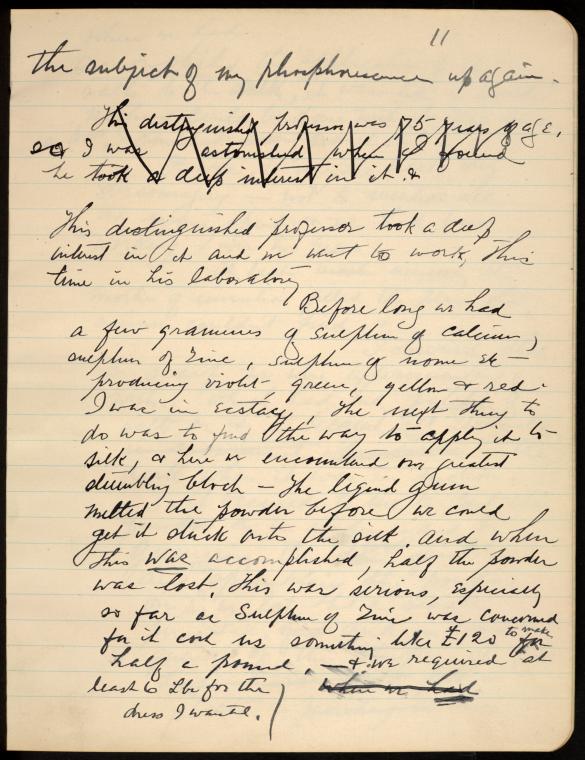 11
the subject of my phosphorescence up again.
This distinguished professor was 75 years of age,
so I was astonished when I found
he took a deep interest in it. &
This distinguished professor took a deep
interest in it and we went to work, this
time in his laboratory
Before long we had
a few grammes of sulphur of calcium,
sulphur of Zinc, sulphur of etc —
producing violet, green, yellow & red.
I was in ecstacy, the next thing to
do was to find the way to apply it to
silk, & here we encountered our greatest
stumbling block — the liquid gum
melted the powder before we could
get it stuck onto the silk. and when
this was accomplished, half the powder
was lost. This was serious, especially
so far as Sulphur of Zinc was concerned
for it cost us something like £120 to make for
half a pound. — & we required at
least 6 Lbs for the when we had
dress I wanted.